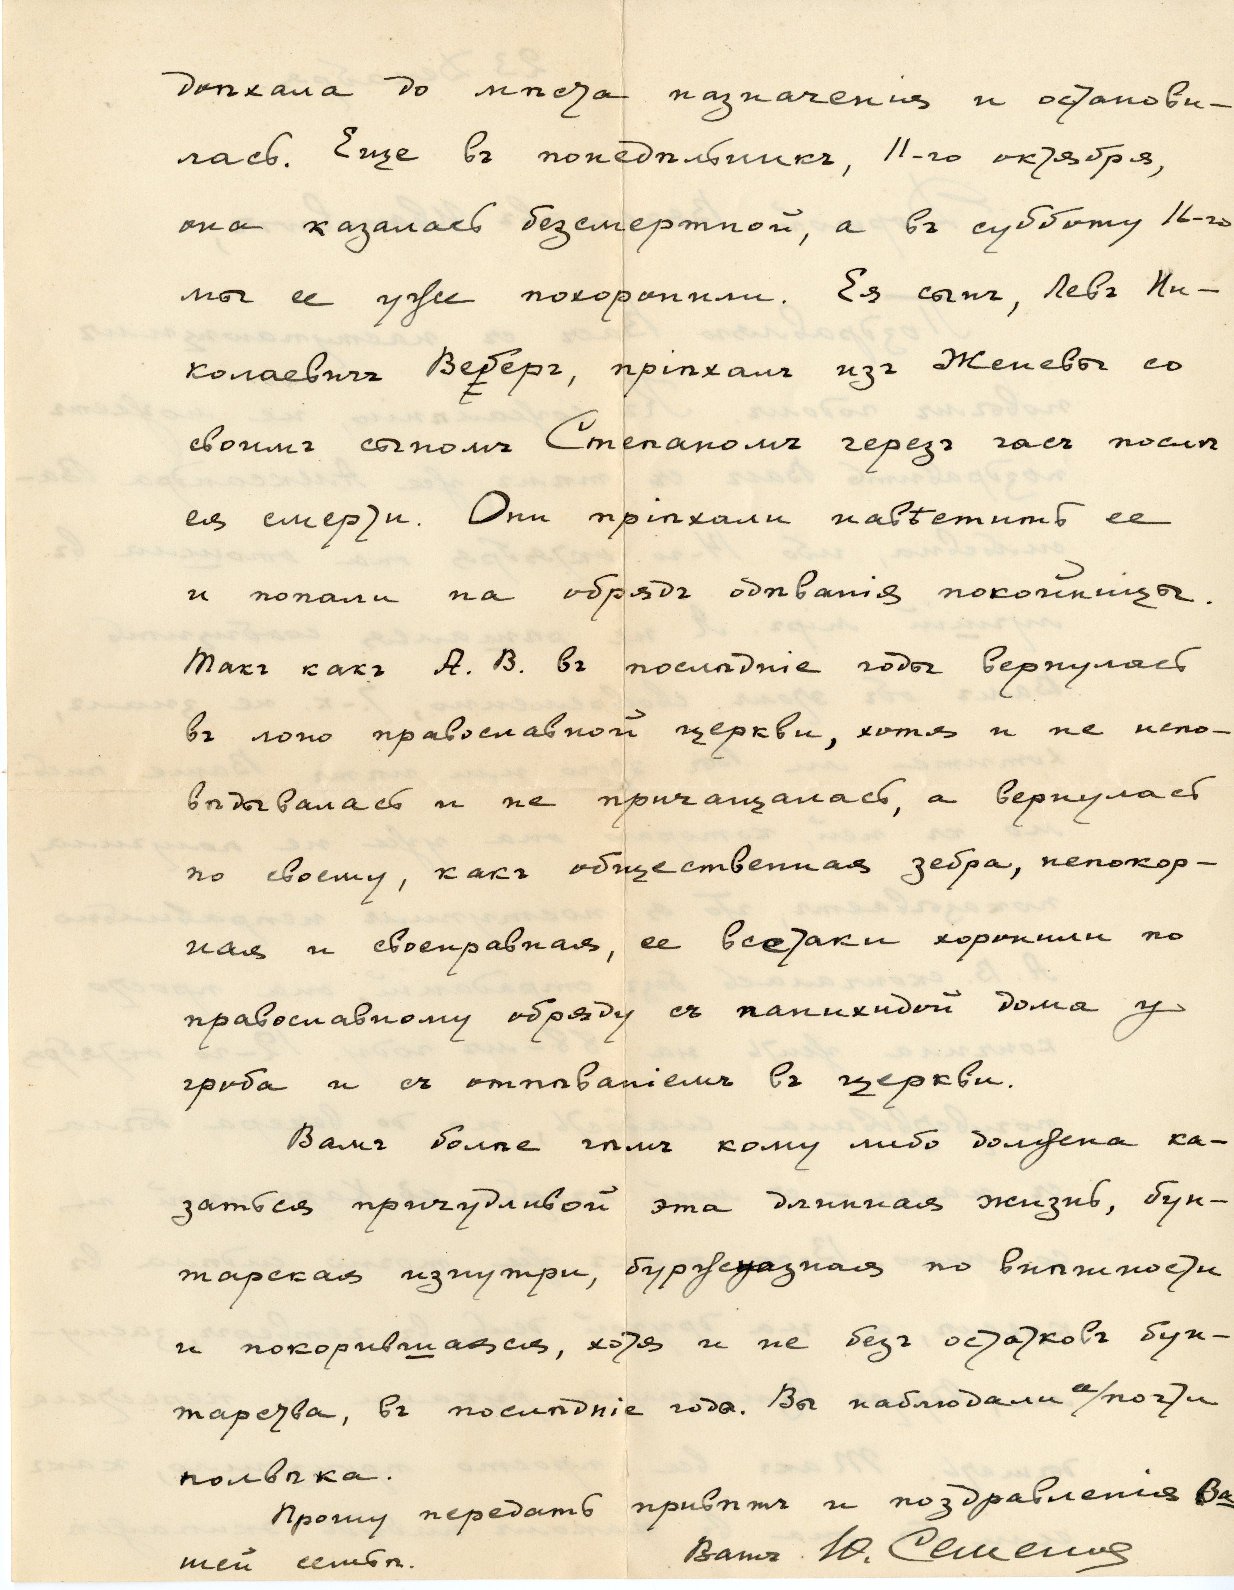 доѣхала до мѣста назначенія и останови-
лась. Еще въ понедѣльникъ, 11-го октября,
она казалась безсмертной, а въ субботу 16-го
мы ее уже похоронили. Ея сынъ, Левъ Ни-
колаевичъ Веберъ, пріѣхалъ изъ Женевы со
своимъ сыномъ Степаномъ черезъ часъ послѣ
ея смерти. Они пріѣхали навѣстить ее
и попали на обрядъ одѣванія покойницы.
Такъ какъ А. В. въ послѣдніе годы вернулась
въ лоно православной церкви, хотя и не испо-
вѣдывалась и не причащалась, а вернулась
по своему, какъ общественная зебра, непокор-
ная и своенравная, ее всетаки хоронили по
православному обряду съ панихидой дома у
гроба и съ отпѣваніемъ въ церкви.
Вамъ болѣе чѣмъ кому либо должна ка-
заться причудливой эта длинная жизнь, бун-
тарская изнутри, буржуазная по внѣшности
и покорившаяся, хотя и не безъ остатковъ бун-
тарства, въ послѣдніе годы. Вы наблюдали ее почти
полвѣка.
Прошу передать привѣтъ и поздравленія Ва-
шей семьѣ.
Вашъ Ю. Семенов